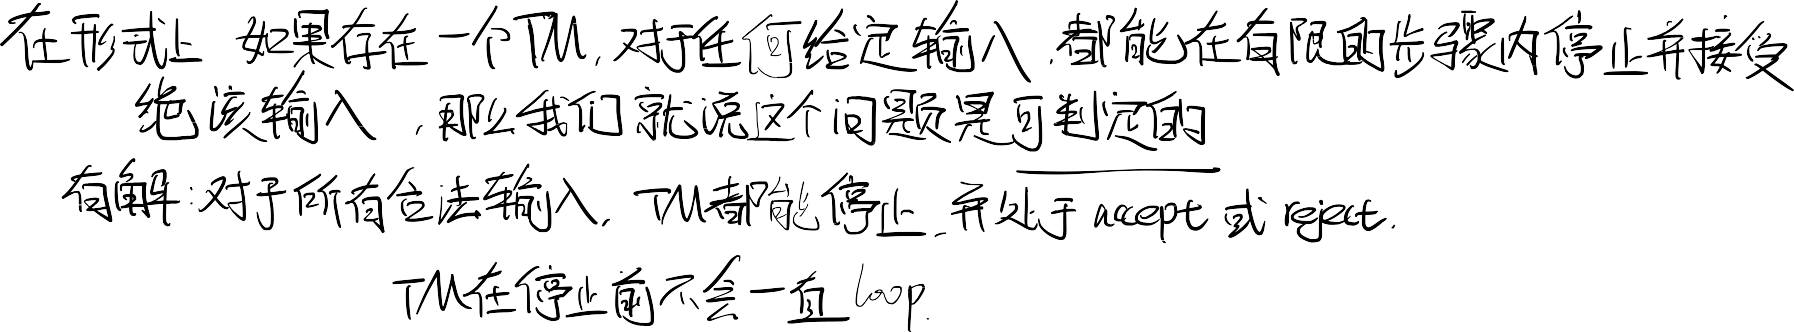 在形式上 如果存在一个TM，对于任何给定输入，都能在有限的步骤内停止并接受
绝该输入，那么我们就说这个问题是可判定的
有解：对于所有合法输入，TM都能停止，并处于accept或reject.
TM在停止前不会一直loop.